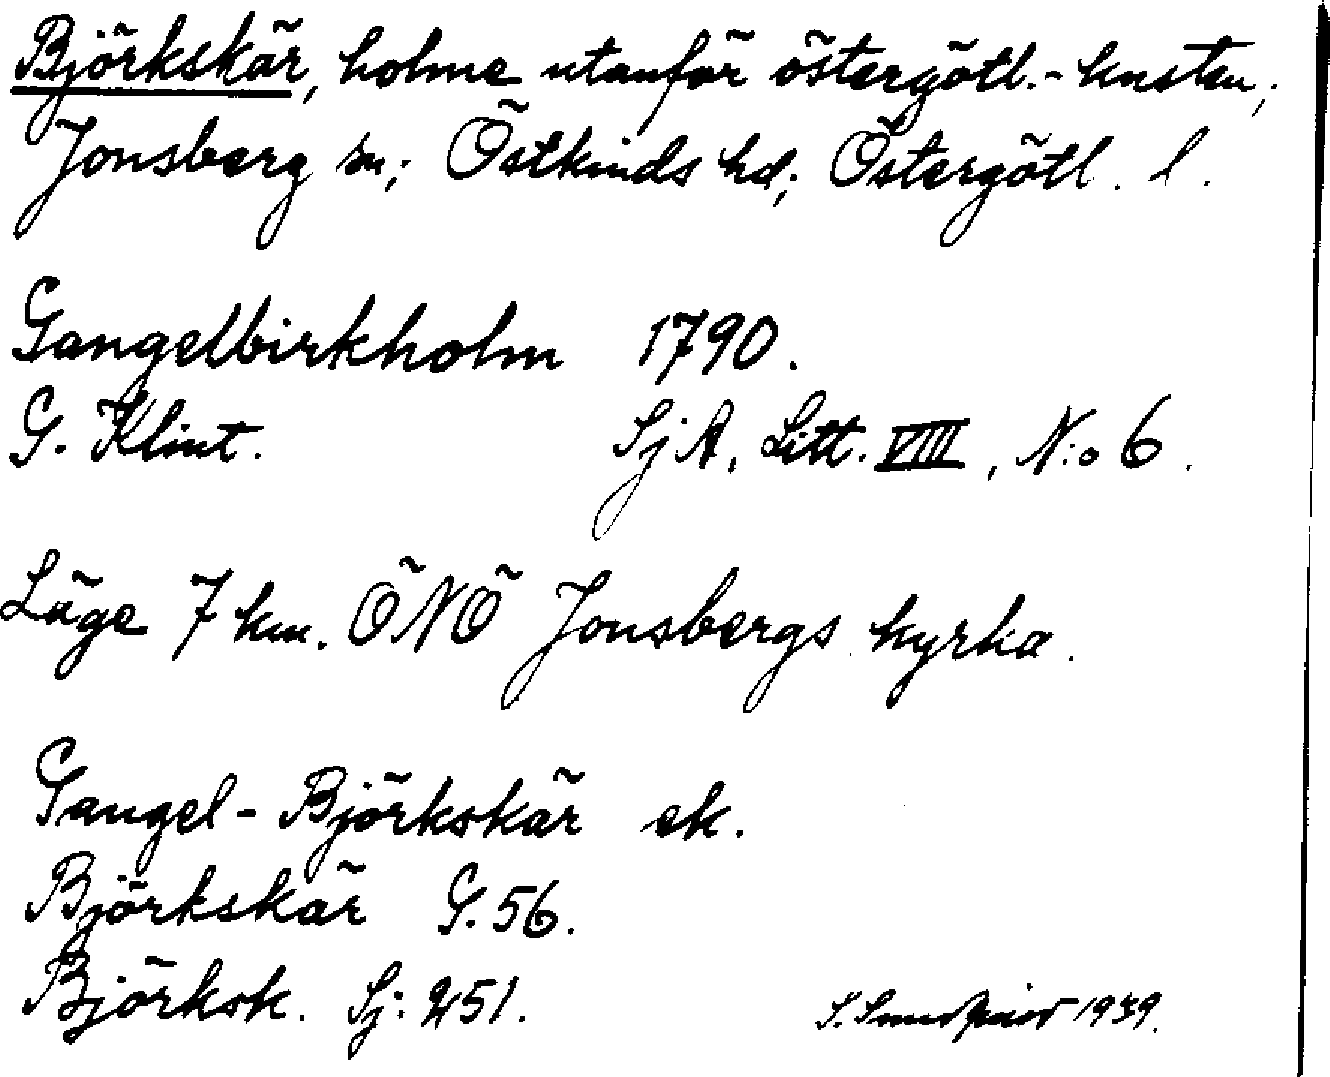 Björkskär, holme utanför östergötl.-kusten;
Jonsberg sn; Östkinds hd; Östergötl. l.
Gangelbirkholm 1790.
G. Klint. SjA, Litt. VIII, N:o 6.
Läge 7 km. ÖNÖ Jonsbergs kyrka.
Gangel-Björkskär ek.
Björkskär G. 56.
Björksk. Sj: 251.
S. 1939.